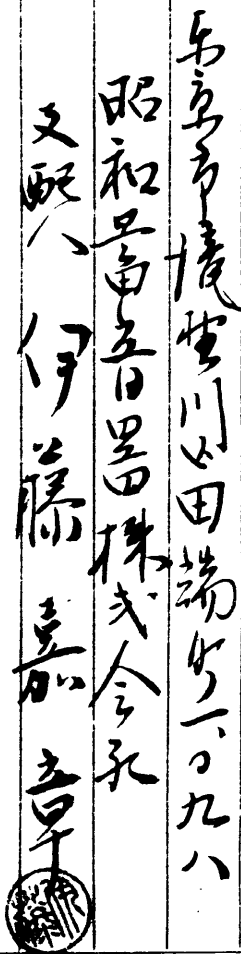 東京市滝野川区田端町一、〇九八
昭和蓄音器株式会社
支配人 伊藤嘉章